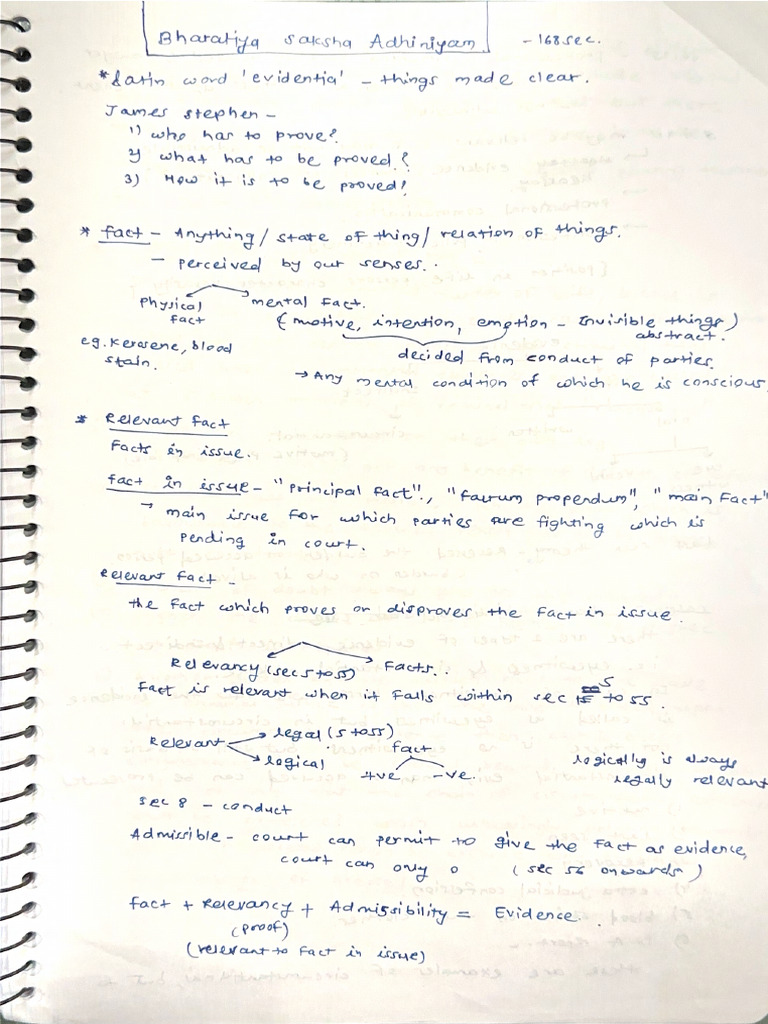 Bharatiya Saksha Adhiniyam - 168 sec.
* Latin word 'evidentia' - things made clear.
James Stephen -
1) who has to prove?
2) what has to be proved?
3) How it is to be proved?
* Fact - Anything / state of thing / relation of things.
- perceived by our senses..
physical fact
mental fact.
(motive, intention, emotion - Invisible things)
abstract.
eg. kerosene, blood stain.
decided from conduct of parties.
→ Any mental condition of which he is conscious.
* Relevant fact
Facts in issue.
fact in issue - "principal fact"., "factum propendum", "main fact"
→ main issue for which parties are fighting which is
pending in court.
Relevant fact -
the fact which proves or disproves the fact in issue.
Relevancy (sec 5 to 55) Facts..
Fact is relevant when it falls within sec 5 to 55.
Relevant → legal (5 to 55)
→ logical
fact
+ve -ve.
logically is always
legally relevant
sec 8 - conduct
Admissible - court can permit to give the fact as evidence,
court can only o (sec 56 onwards)
Fact + Relevancy + Admissibility = Evidence.
(proof)
(relevant to fact in issue)